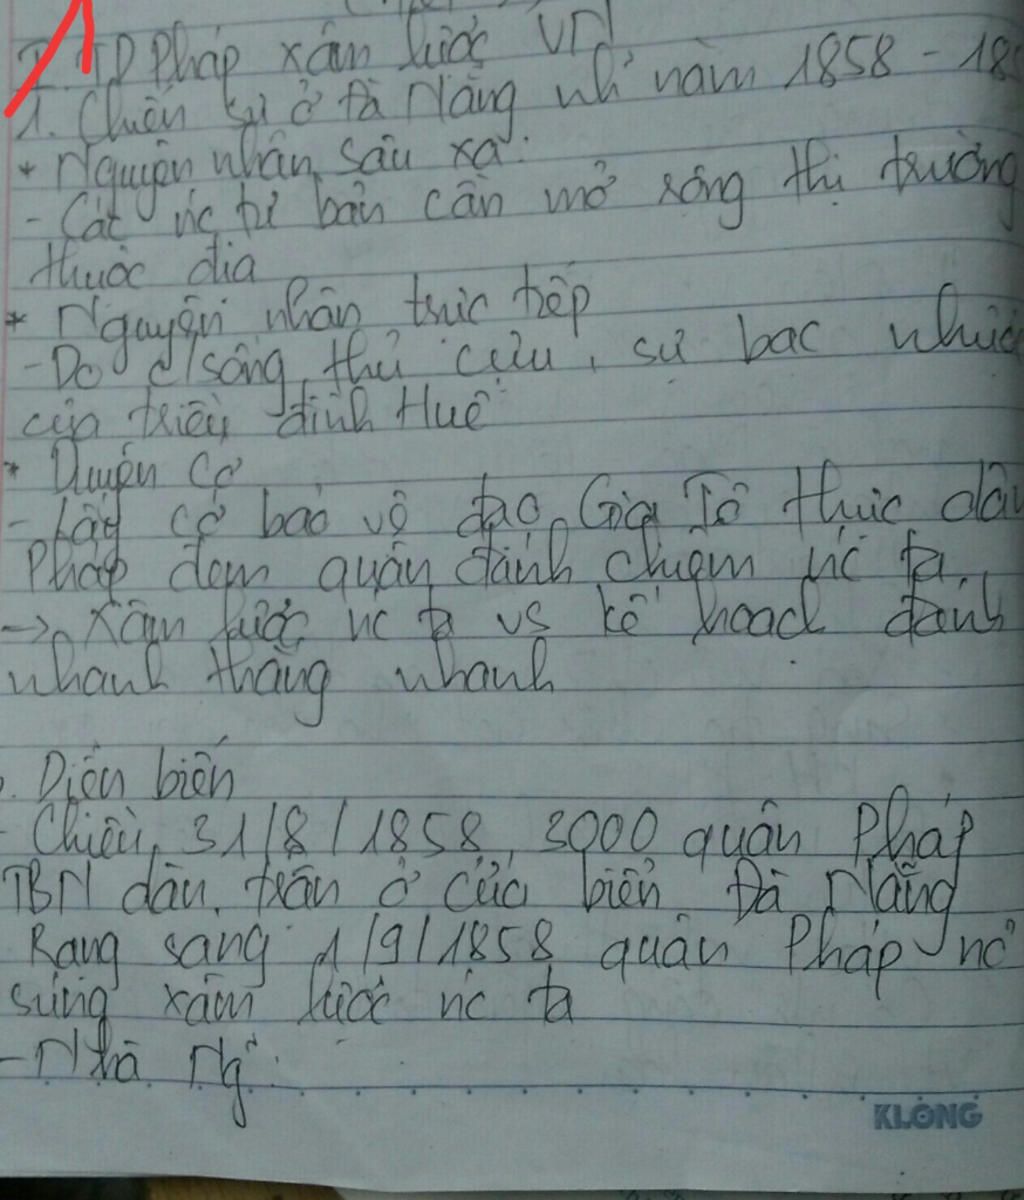 I. TD Pháp xâm lược VN
1. Chiến sự ở Đà Nẵng nh~ năm 1858 - 18
* Nguyên nhân sâu xa:
- Các nc tư bản cần mở rộng thị trường
thuộc địa
* Nguyên nhân trực tiếp
- Do c/sống thủ cựu, sự bạc nhược
của triều đình Huế
* Duyên cớ
- Lấy cớ bảo vệ đạo Gia Tô thực dân
Pháp đem quân đánh chiếm nc ta.
-> Xâm lược nc ta vs kế hoạch đánh
nhanh thắng nhanh
. Diễn biến
- Chiều 31/8/1858, 3000 quân Pháp
TBN dàn trận ở cửa biển Đà Nẵng
Rạng sáng 1/9/1858 quân Pháp nổ
súng xâm lược nc ta
- Nhà Ng~:
KLONG